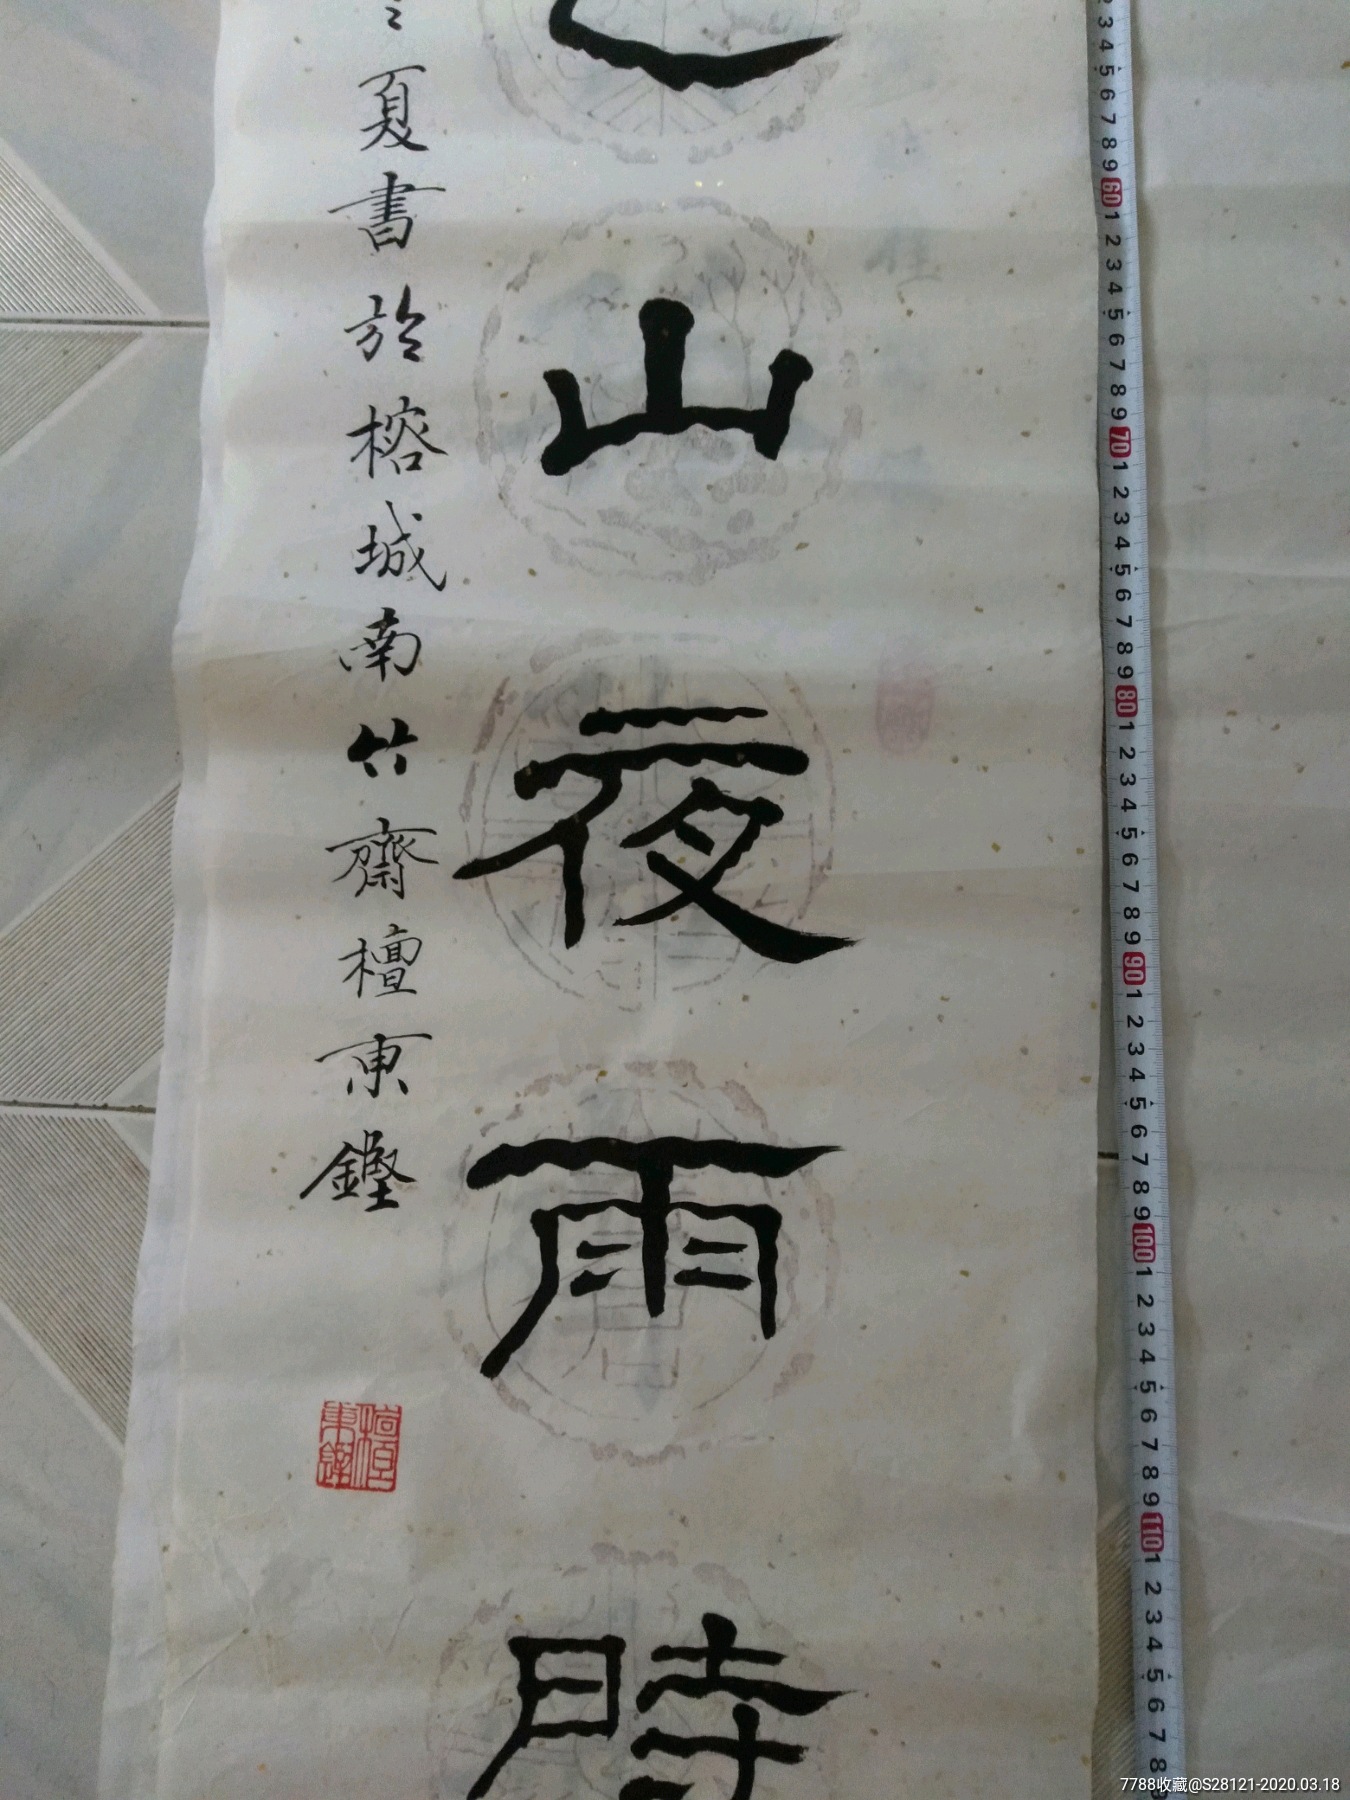 山夜雨時
夏書於榕城南竹齋檀東鏗
2 3 4 5 6 7 8 9 60 1 2 3 4 5 6 7 8 9 70 1 2 3 4 5 6 7 8 9 80 1 2 3 4 5 6 7 8 9 90 1 2 3 4 5 6 7 8 9 100 1 2 3 4 5 6 7 8 9 110 1 2 3 4 5 6 7 8
7788收藏@S28121-2020.03.18